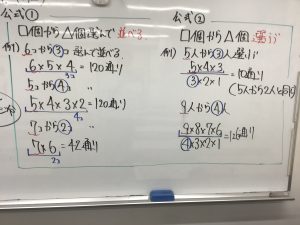 公式①
□個から△個選んで並べる.
例) 6コから③コ選んで並べる.
6×5×4=120通り
3コ
5コから④コ 〃
5×4×3×2=120通り
4コ
7コから②コ 〃
7×6=42通り
2コ
公式②
□個から△個選ぶ
例) 5人から③人選ぶ
5×4×3
③×2×1
=10通り
(5人から2人と同じ)
9人から④人
9×8×7×6
④×3×2×1
=126通り